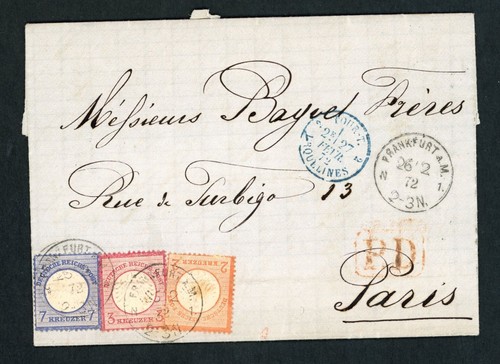 Messieurs Bayvet Frères
Rue de Turbigo 13
Paris
FRANKFURT A.M.
26 2
72
2-3N.
1.
27
FEVR
72
PD
DEUTSCHE REICHS-POST
7 KREUZER 7
REICHS
3 KREUZER 3
2 KREUZER 2
FRANKFURT A.M.
72